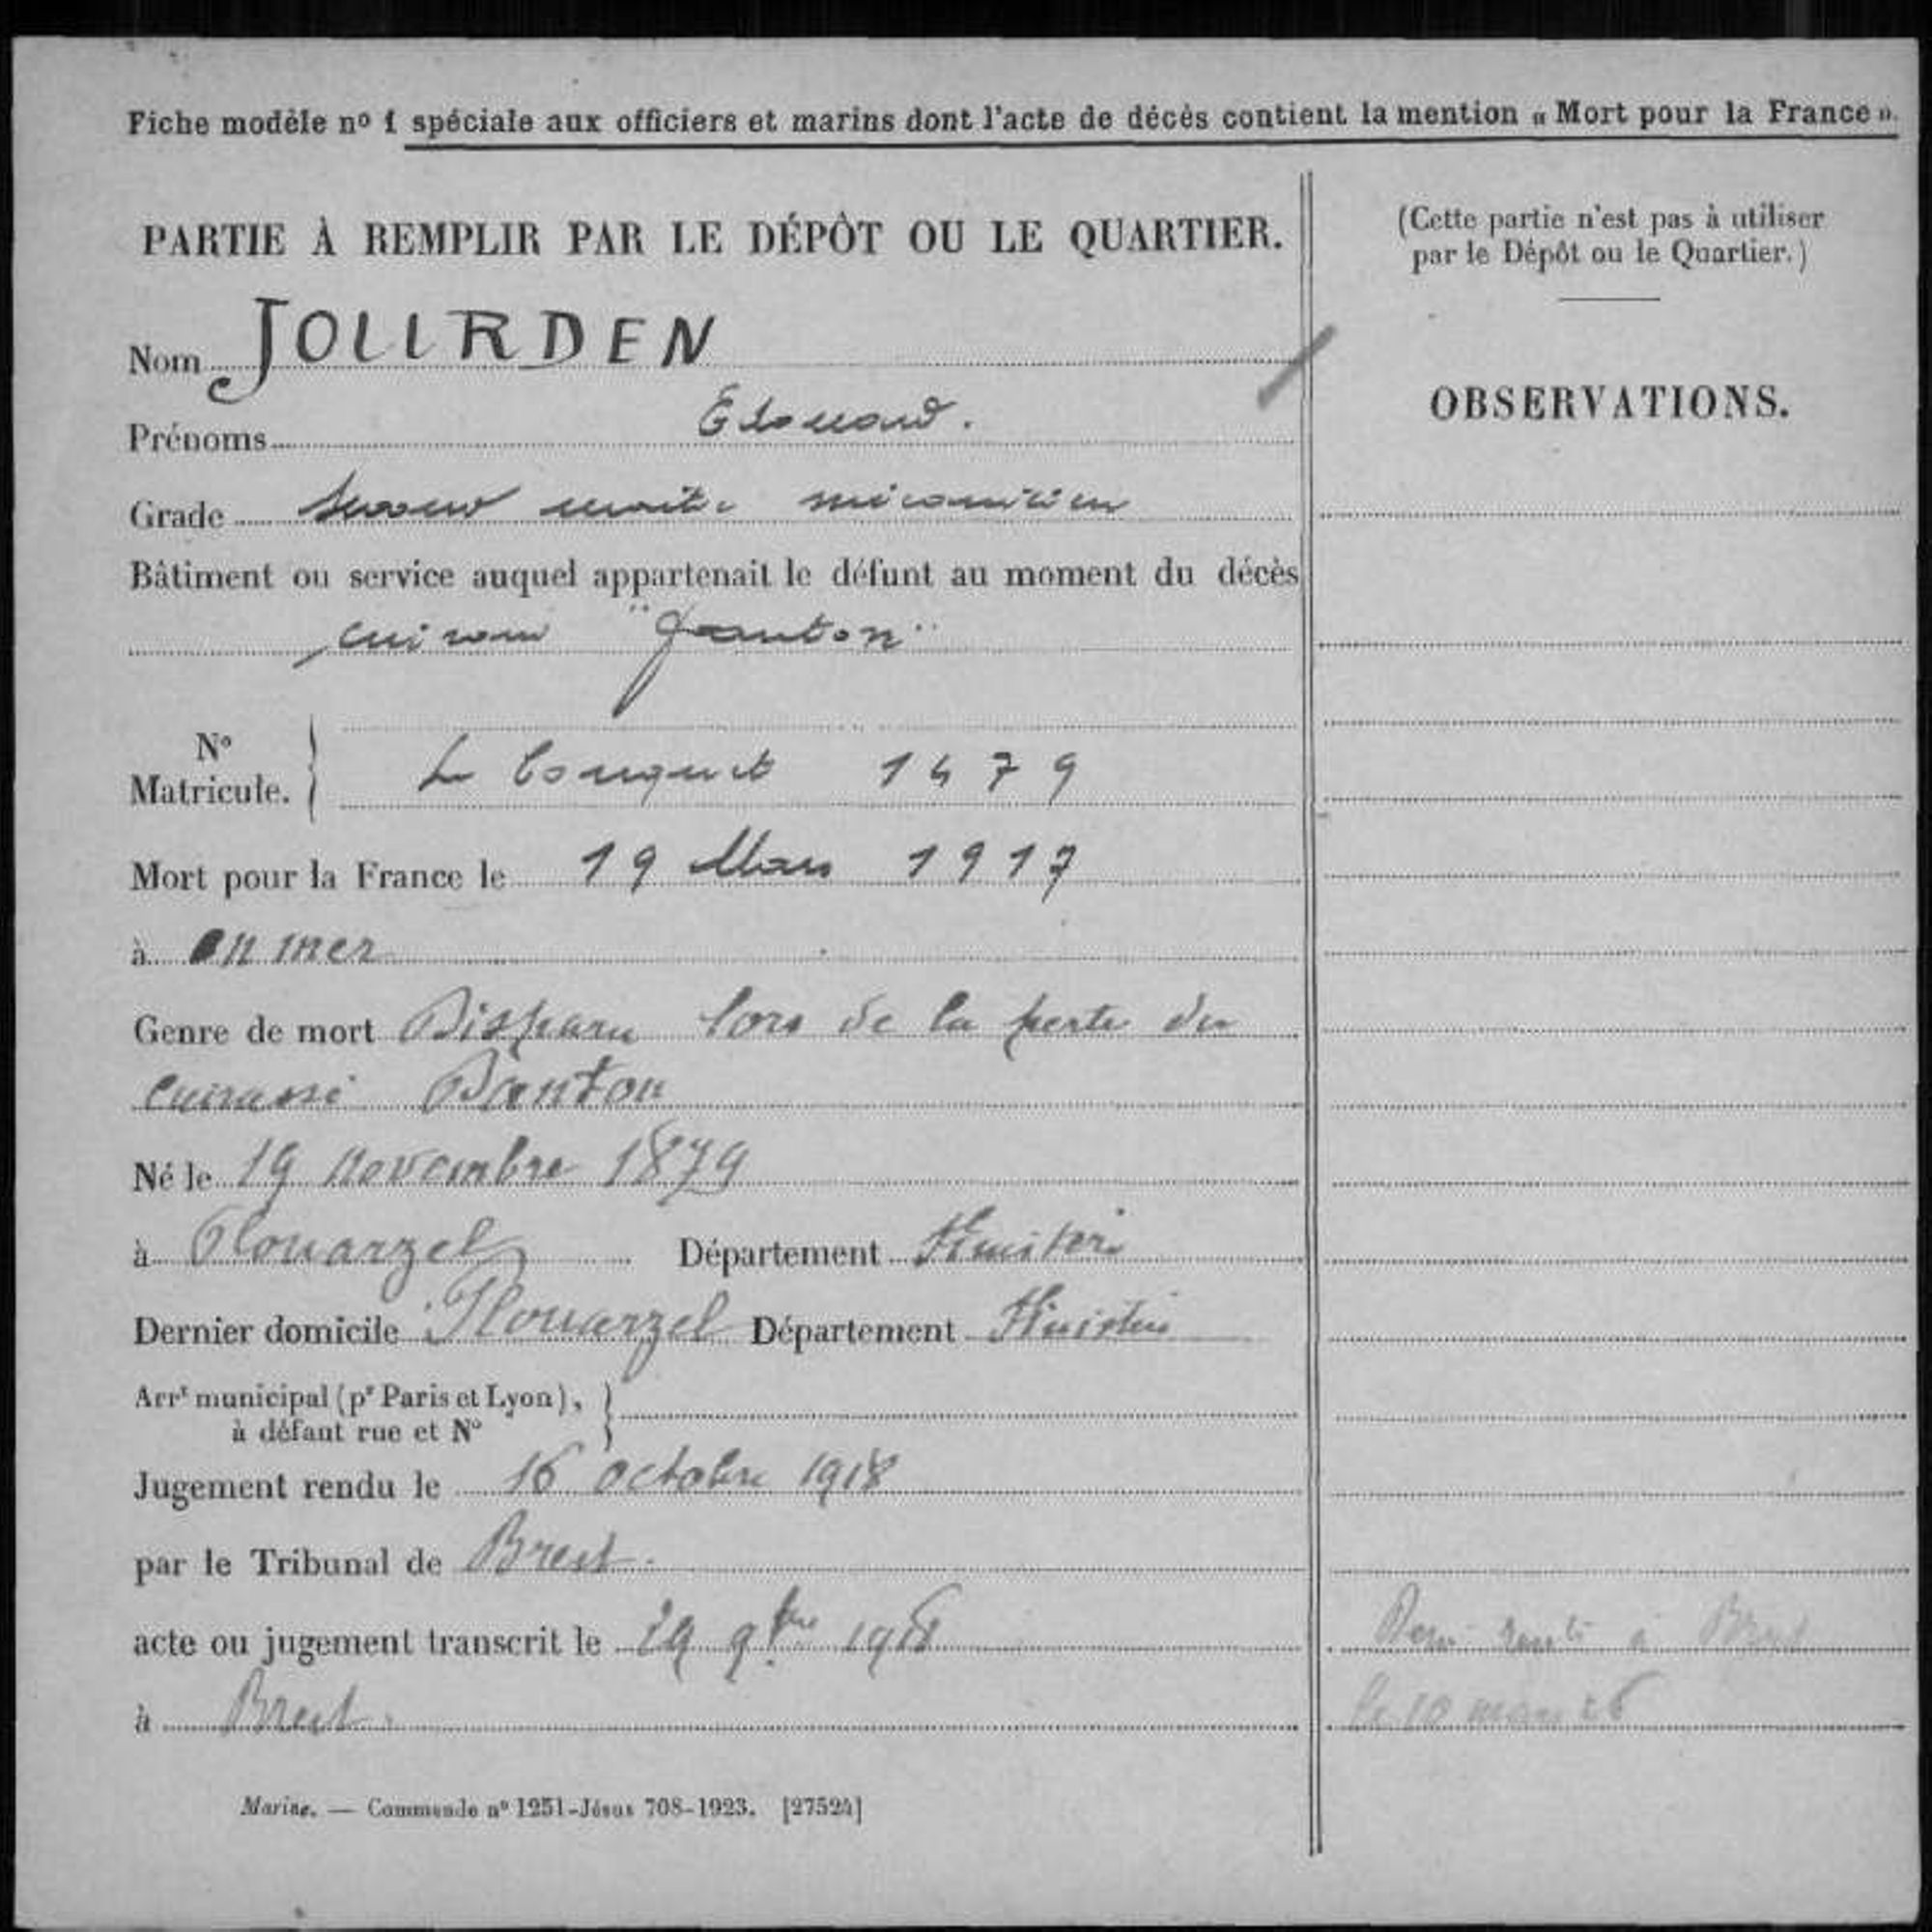 Fiche modèle nº 1 spéciale aux officiers et marins dont l'acte de décès contient la mention « Mort pour la France ».
PARTIE À REMPLIR PAR LE DÉPÔT OU LE QUARTIER.
Nom JOURDEN
Prénoms Edouard.
Grade second maître mécanicien
Bâtiment ou service auquel appartenait le défunt au moment du décès
cuirassé "Danton"
Nº Matricule. Le Conquet 1479
Mort pour la France le 19 Mars 1917
à en mer
Genre de mort Disparu lors de la perte du
cuirassé Danton
Né le 19 novembre 1879
à Plouarzel Département Finistère
Dernier domicile Plouarzel Département Finistère
Arrt municipal (pr Paris et Lyon),
à défaut rue et Nº
Jugement rendu le 16 octobre 1918
par le Tribunal de Brest.
acte ou jugement transcrit le 29 9bre 1918
à Brest.
Marine. — Commande nº 1251-Jésus 708-1923. [27524]
(Cette partie n'est pas à utiliser
par le Dépôt ou le Quartier.)
OBSERVATIONS.
à Brest
le 10 mars 26